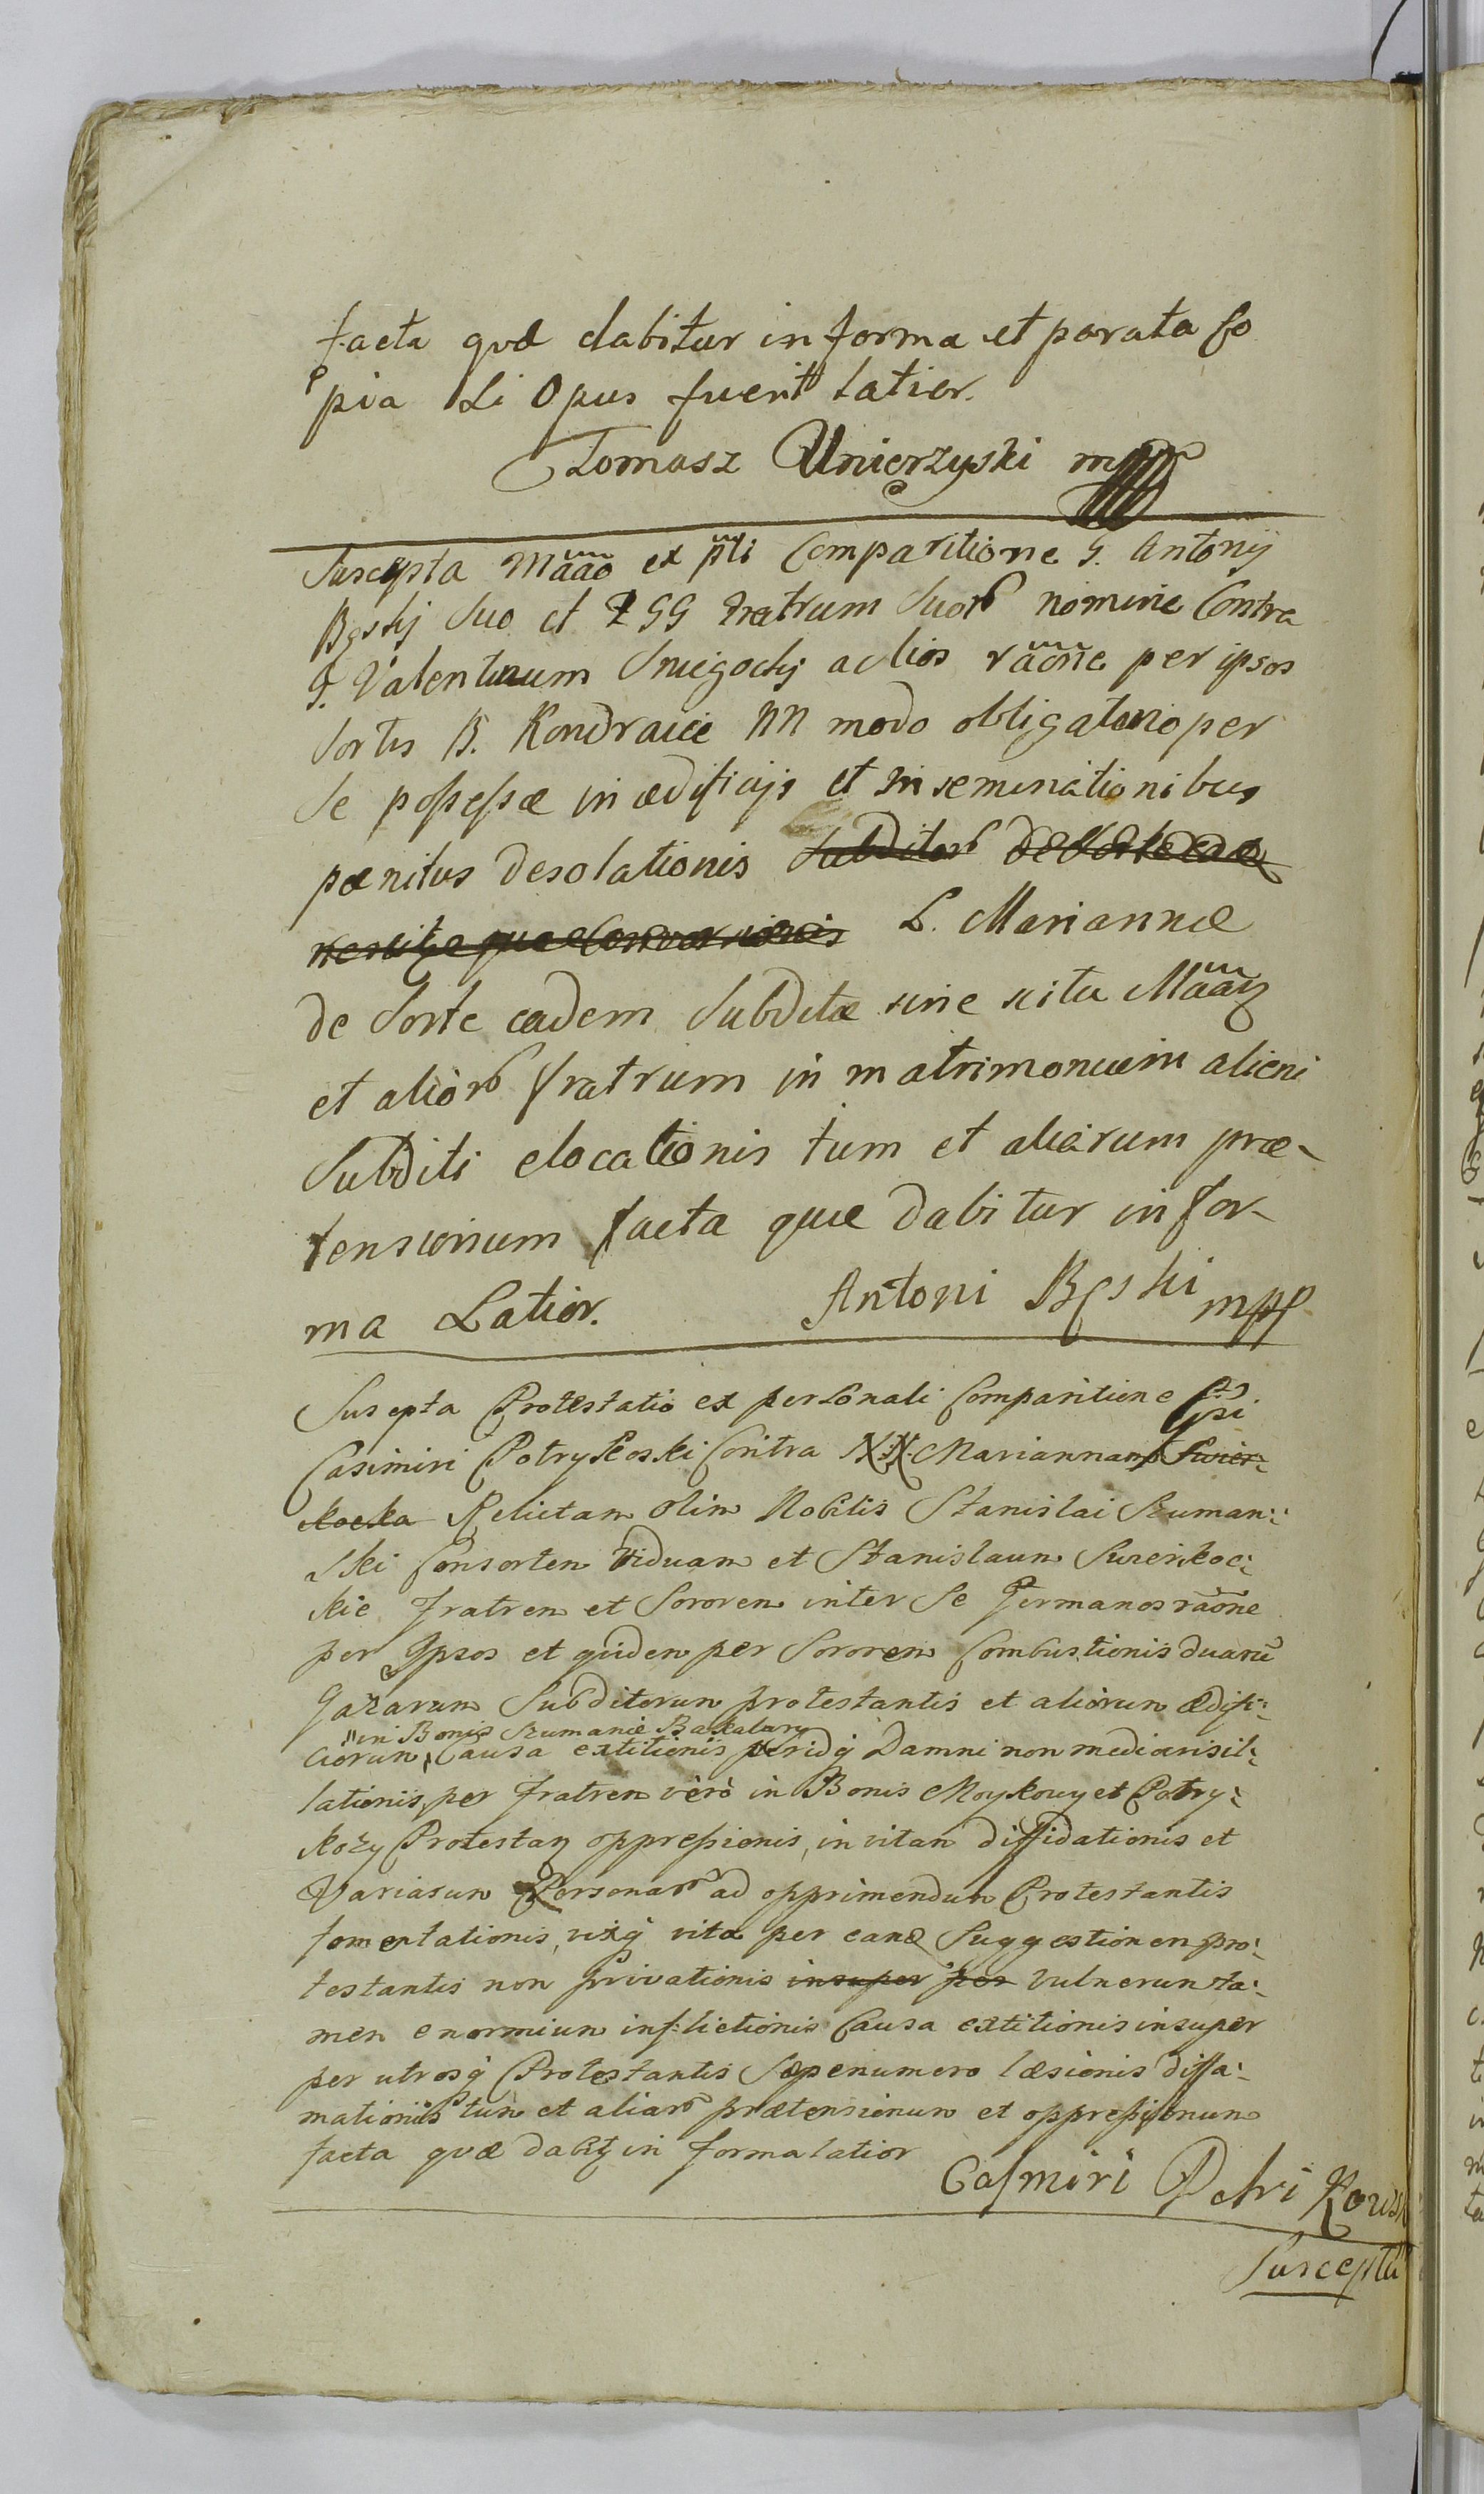 facta quæ dabitur in forma et parata Co
pia si Opus fuerit latior.
Tomasz Unierzyski mpp
Suscepta Maão ex pñli Comparitione G. Antonij
Bęskj suo et GG Fratrum Suorb nomine Contra
G. Valentinum Sniegockj ac lios raõne per ipsos
Sortis B. Kondraice NN modo obligatorio per
se possessæ in ædificijs et in seminationibus
pænitus desolationis Subditorb de Sorte eadem
L. Mariannæ
de Sorte eadem Subditæ sine scitu Maãtz
et aliorb fratrum in matrimonium alieni
Subditi elocationis tum et aliarum præ-
tensionum facta quæ dabitur in for-
ma Latior. Antoni Bęski mpp
Suscepta Protestatio ex personali Comparitione Gsi
Casimiri Potrykoski Contra N:N: Mariannam Swier:
kocka Relictam olim Nobilis Stanislai Szuman:
ski Consortem Viduam et Stanislaum Swierkoc:
kie fratrem et Sororem inter Se Germanos raõne
per Ipsos et quidem per Sororem Combustionis duarũ
Gazarum Subditorum protestantis et aliorum ædifi:
in Bonis Szumanie Bakalary
ciorum, Causa extitionis peridq Damni non mediocris il:
lationis, per fratrem verò in Bonis Moykowy et Potry:
kozy Protestan oppressionis, in vitam diffidationis et
Variarum Personarb ad opprimendum Protestantis
fomentationis, vixq vita per eand Suggestionem pro:
testantis non privationis insuper per vulnerum ta:
men enormium inflictionis Causa extitionis insuper
per utrosq Protestantis Sæpenumero læsionis diffa:
mationis tum et aliarb prætensionum et oppressionum
facta quæ dabitz in forma latior
Casmiri Petri Kowsk
Suscepta